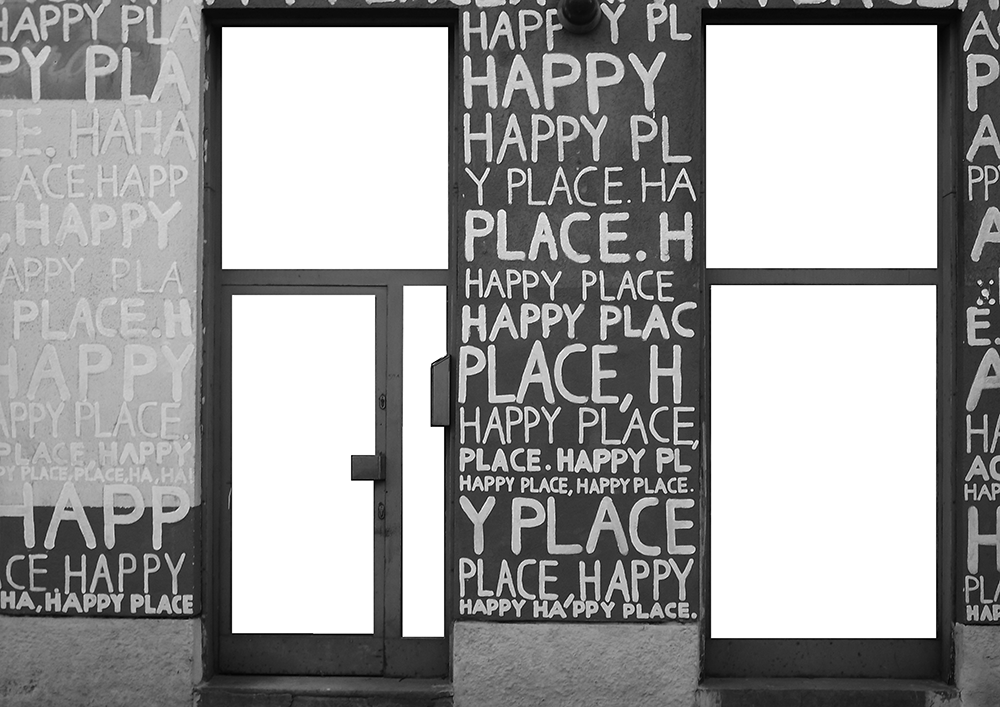 HAPPY PLA
PY PLA
CE. HAHA
LACE, HAPP
, HAPPY
HAPPY PLA
PLACE. H
HAPPY
APPY PLACE,
PLACE, HAPPY
PY PLACE, PLACE, HA, HA!
HAPP
CE. HAPPY
HA, HAPPY PLACE
HAPPY PL
HAPPY
HAPPY PL
Y PLACE. HA
PLACE. H
HAPPY PLACE
HAPPY PLAC
PLACE, H
HAPPY PLACE,
PLACE. HAPPY PL
HAPPY PLACE, HAPPY PLACE.
Y PLACE
PLACE, HAPPY
HAPPY HA'PPY PLACE.
A
P
A
PPY
A
Ë.
A
HA
AC
HAP
H
PLA
HAP